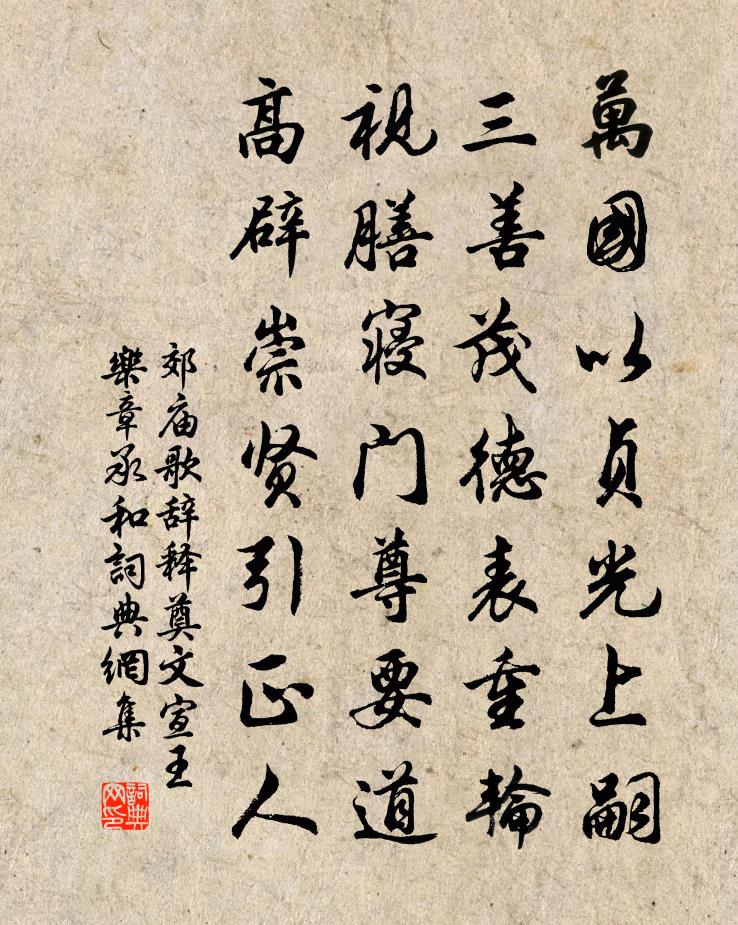 萬國以貞光上嗣
三善茂德表重輪
視膳寝门尊要道
高辟崇贤引正人
郊庙歌辞释奠文宣王
樂章承和詞典網集
詞典网印